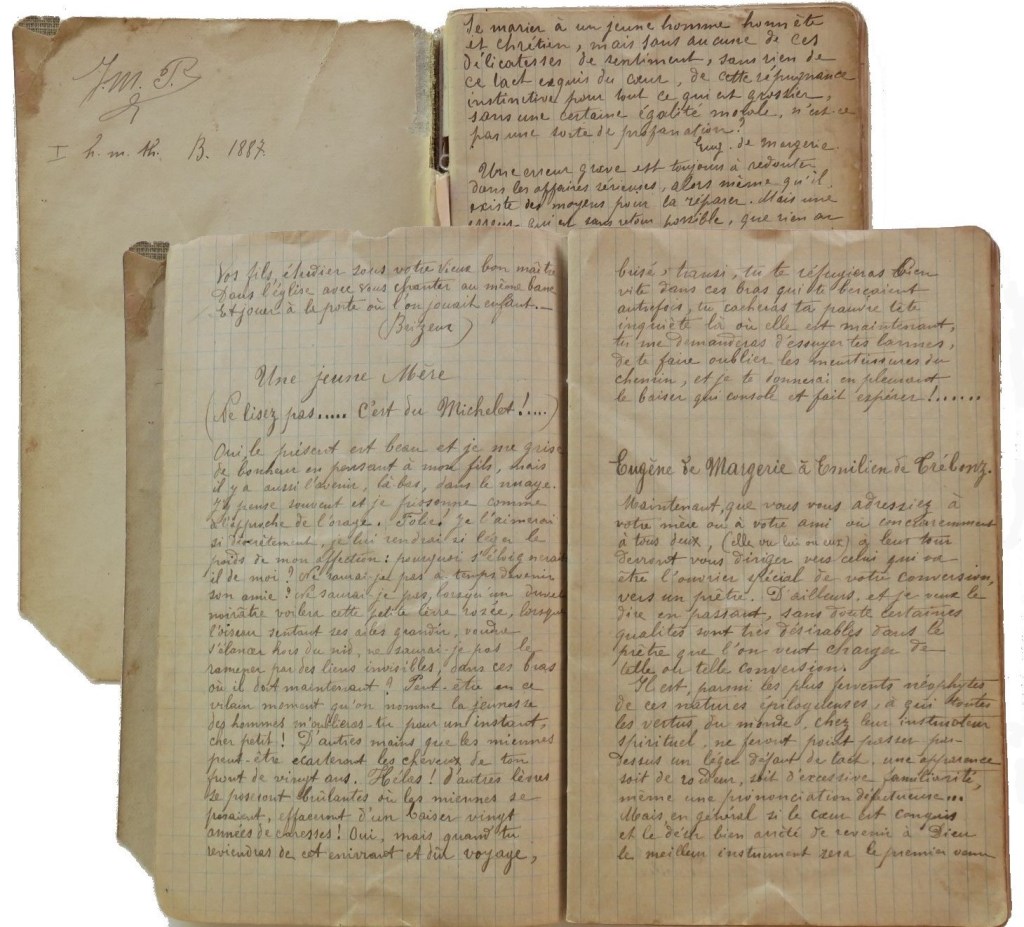 J. M. B.
I h. m. th. B. 1887
Se marier à un jeune homme honnête
et chrétien, mais sans aucune de ces
délicatesses de sentiment, sans rien de
ce tact exquis du cœur, de cette répugnance
instinctive pour tout ce qui est grossier,
sans une certaine égalité morale, n'est-ce
pas une sorte de profanation?
Eug. de Margerie.
Une erreur grave est toujours à redouter
dans les affaires sérieuses, alors même qu'il
existe des moyens pour la réparer. Mais une
erreur qui est sans retour possible, que rien au
Vos fils, étudier sous votre vieux bon maître
Dans l'église avec vous chanter au même banc
Et jouer à la porte où l'on jouait enfant.—
(Brizeux)
Une jeune Mère
(Ne lisez pas..... C'est du Michelet!....)
Oui, le présent est beau et je me grise
de bonheur en pensant à mon fils, mais
il y a aussi l'avenir, là-bas, dans le nuage.
J'y pense souvent et je frissonne comme
à l'approche de l'orage. Folie! je l'aimerai
si discrètement, je lui rendrai si léger le
poids de mon affection: pourquoi s'éloignerait
il de moi? Ne saurai-je pas à temps devenir
son amie? Ne saurai-je pas, lorsqu'un duvet
noirâtre voilera cette petite lèvre rosée, lorsque
l'oiseau sentant ses ailes grandir, voudra
s'élancer hors du nid, ne saurai-je pas le
ramener par des liens invisibles, dans ces bras
où il dort maintenant? Peut-être en ce
vilain moment qu'on nomme la jeunesse
des hommes m'oublieras-tu pour un instant,
cher petit! D'autres mains que les miennes
peut-être écarteront les cheveux de ton
front de vingt ans. Hélas! d'autres lèvres
se poseront brûlantes où les miennes se
posaient, effaceront d'un baiser vingt
années de caresses! Oui, mais quand tu
reviendras de cet enivrant et dur voyage,
brisé, transi, tu te réfugieras bien
vite dans ces bras qui te berçaient
autrefois, tu cacheras ta pauvre tête
inquiète là où elle est maintenant,
tu me demanderas d'essuyer tes larmes,
de te faire oublier les meurtrissures du
chemin, et je te donnerai en pleurant
le baiser qui console et fait espérer!......
Eugène de Margerie à Emilien de
Maintenant, que vous vous adressiez à
votre mère ou à votre ami ou concurremment
à tous deux, (elle ou lui ou eux) à leur tour
devront vous diriger vers celui qui va
être l'ouvrier spécial de votre conversion,
vers un prêtre. D'ailleurs, et je veux le
dire en passant, sans doute certaines
qualités sont très désirables dans le
prêtre que l'on veut charger de
telle ou telle conversion.
Il est, parmi les plus fervents néophytes
de ces natures épilogueuses, à qui toutes
les vertus du monde, chez leur instructeur
spirituel, ne feront point passer par-
dessus un léger défaut de tact, une apparence
soit de roideur, soit d'excessive familiarité,
même une prononciation défectueuse...
Mais, en général si le cœur est conquis
et le désir bien arrêté de revenir à Dieu
le meilleur instrument sera le premier venu